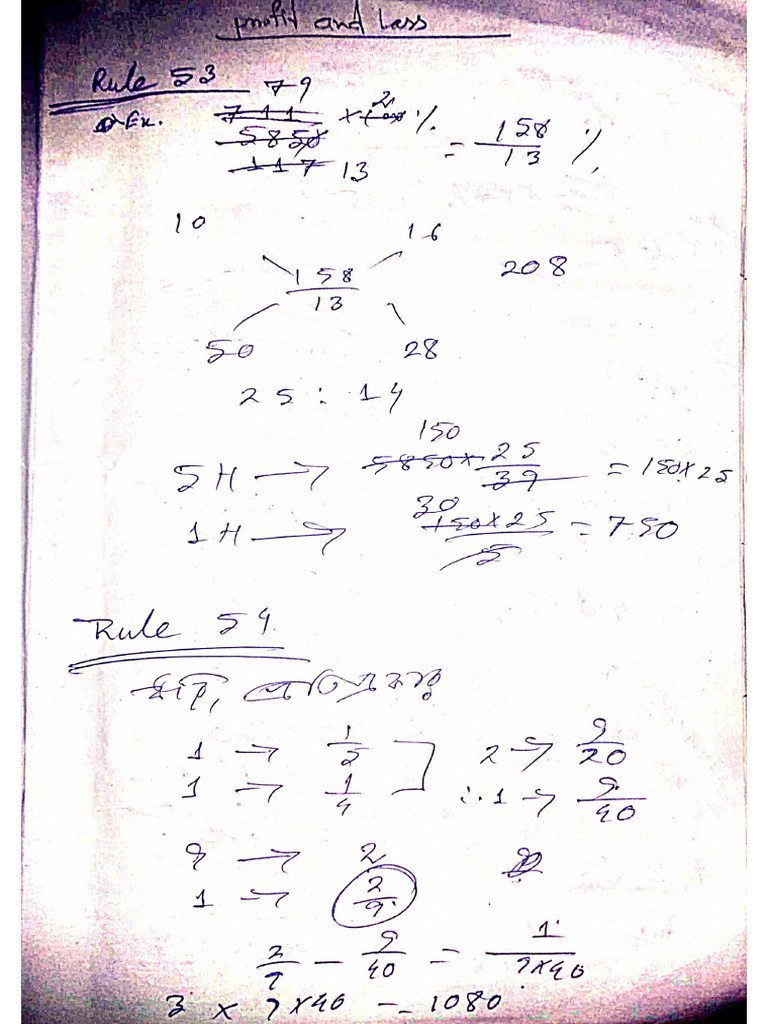 Profit and Lass
Rule 53
79
Ex. 711 / 5850 × 100 % 2 = 158/13 %
117 13
10 16
158/13 208
50 28
25 : 14
150
5H → 5850 × 25/39 = 150×25
30
1H → 150×25/5 = 750
Rule 54
যদি, প্রতিপ্রকার
1 → 1/5 2 → 9/20
1 → 1/4 ∴ 1 → 9/40
9 → 2
1 → 2/9
2/9 - 9/40 = 1/9×40
3 × 9×40 = 1080